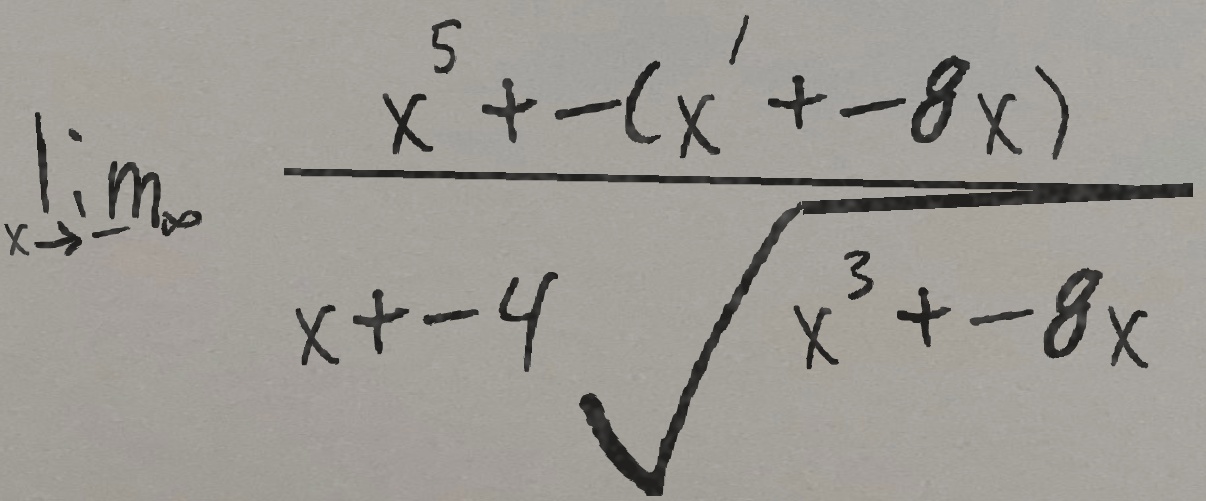 \lim_{x \to -\infty} \frac{x^5 + -(x^1 + -8x)}{x + -4\sqrt{x^3 + -8x}}